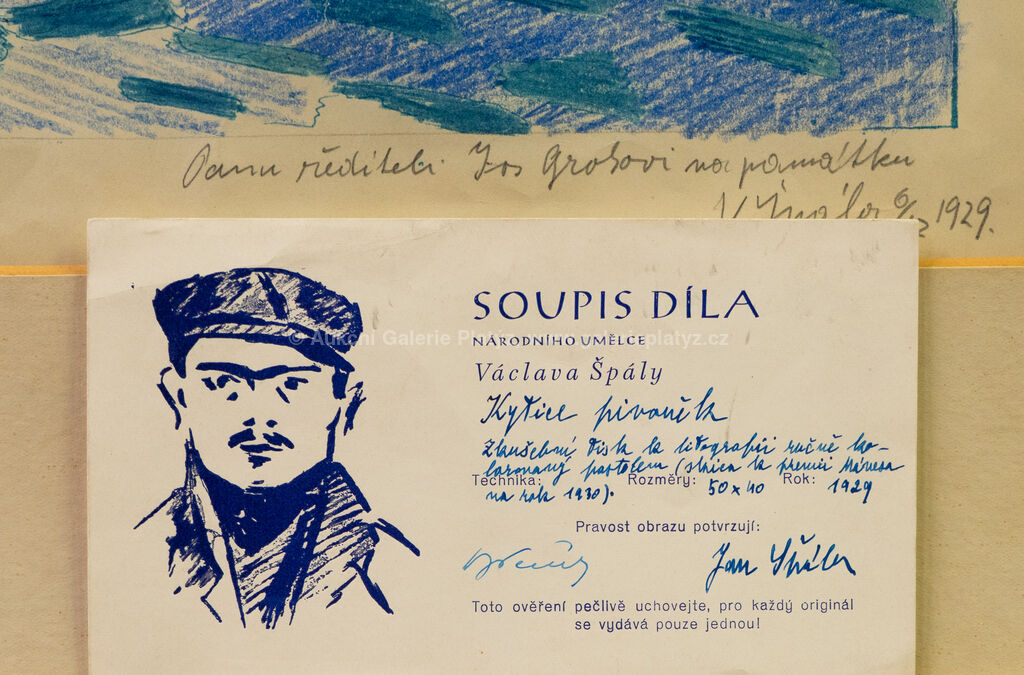 Panu řediteli Jos Grohovi na památku
V Špála 6/ 1929.
SOUPIS DÍLA
© Aukční Galerie Platýz, www.galerieplatyz.cz
NÁRODNÍHO UMĚLCE
Václava Špály
Kytice pivoněk
Zkušební tisk k litografii ručně ko-
lorovaný pastelem (skica k premii Mánesa
Technika: Rozměry: 50 x 40 Rok: 1929
na rok 1930).
Pravost obrazu potvrzují:
Jan Špála
Toto ověření pečlivě uchovejte, pro každý originál
se vydává pouze jednou!